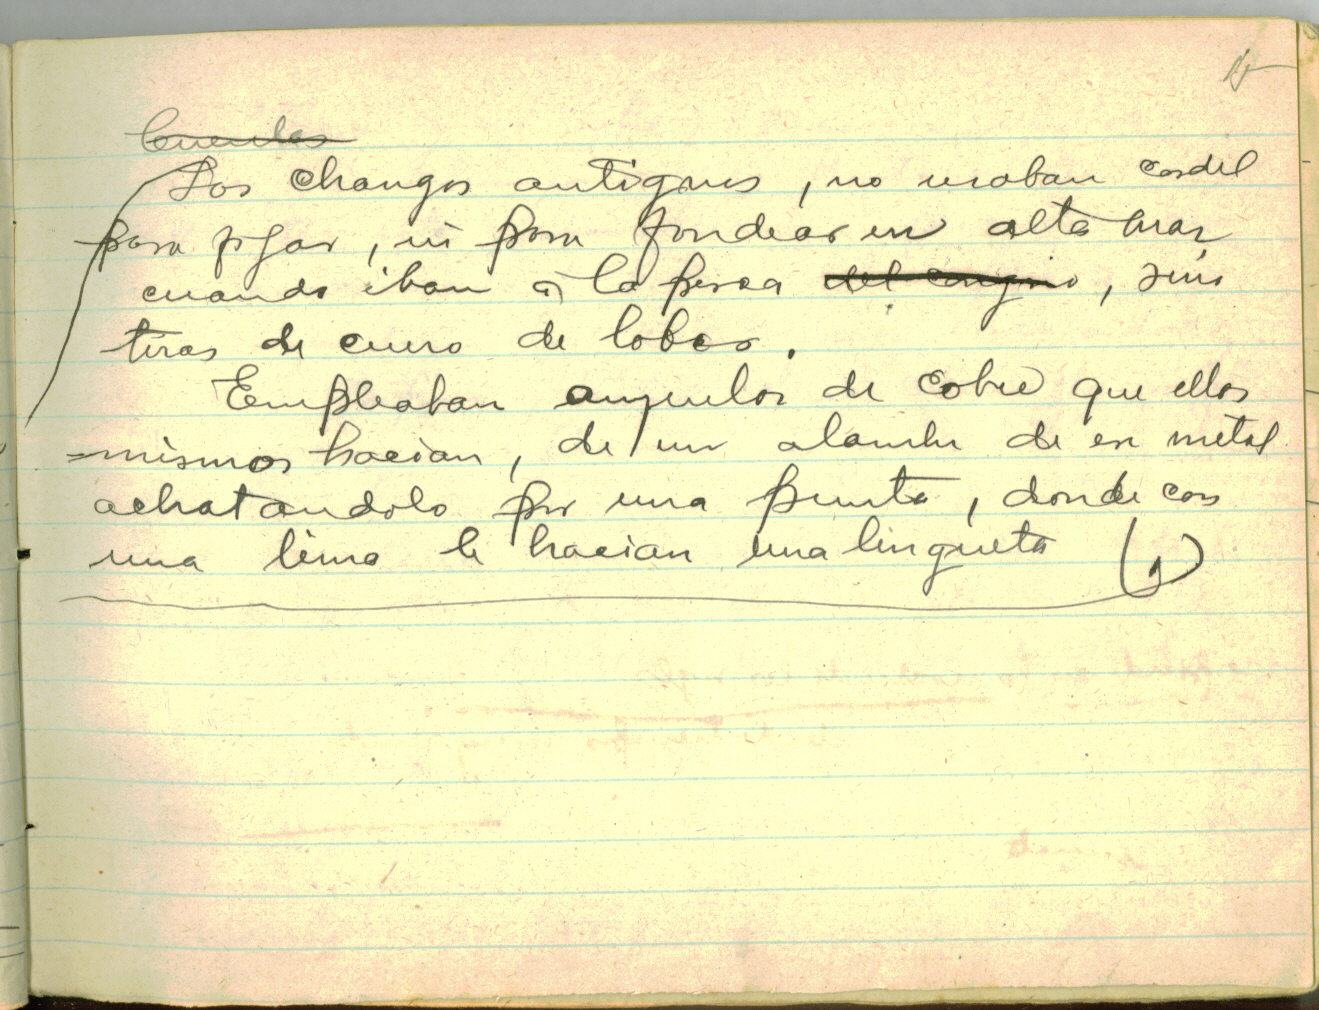 Cuentas
Los changos antiguos, no usaban cordel
para pescar, ni para fondear en alta mar
cuando iban a la pesca del congrio, sino
tiras de cuero de lobos.
Empleaban anzuelos de cobre que ellos
mismos hacian, de un alambre de ese metal
achatandolo por una punta, donde con
una lima le hacian una lingueta (1)